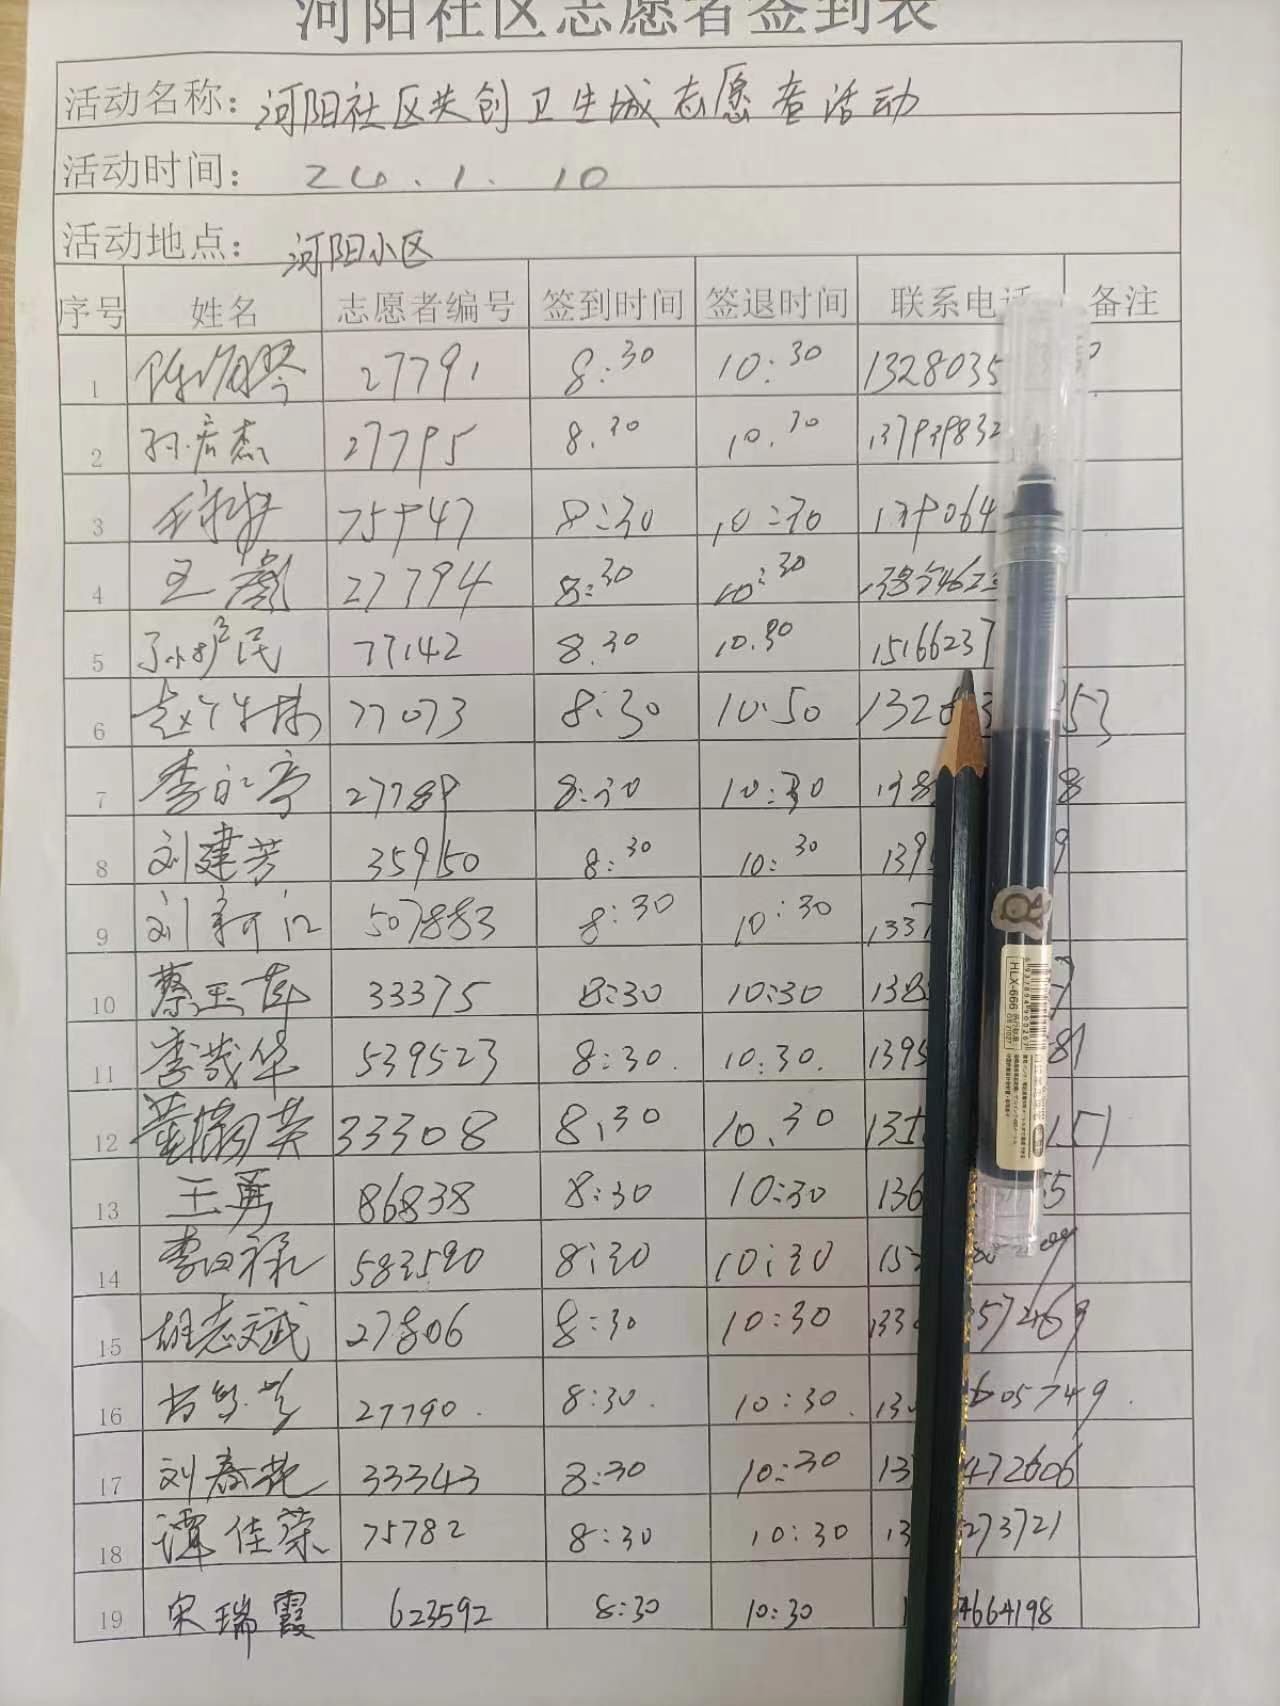 河阳社区志愿者签到表
活动名称：河阳社区共创卫生城志愿者活动
活动时间：24.1.10
活动地点：河阳小区
序号 姓名 志愿者编号 签到时间 签退时间 联系电话 备注
1 27791 8:30 10:30 1328035
2 孙宏杰 27795 8.30 10.30 137939832
3 75947 8:30 10:30 139064
4 王 27794 8:30 10:30 13854623
5 民 77142 8.30 10.30 15166237
6 赵 77073 8:30 10:50 1328 53
7 李永亭 27789 8:30 10:30 138 8
8 刘建芳 359150 8:30 10:30 139 9
9 刘新江 507883 8:30 10:30 1337
10 蔡玉萍 33375 8:30 10:30 138 7
11 李哉华 539523 8:30. 10:30. 1395 81
12 董 英 33308 8.30 10.30 135 151
13 王勇 86838 8:30 10:30 136 55
14 李曰禄 583590 8:30 10:30 15
15 胡志斌 27806 8:30 10:30 133 57469
16 27790. 8:30. 10:30. 13 605749.
17 刘春花 33343 8:30 10:30 13 472606
18 谭佳荣 75782 8:30 10:30 13 273721
19 宋瑞霞 623592 8:30 10:30 1 4664198
HLX-666